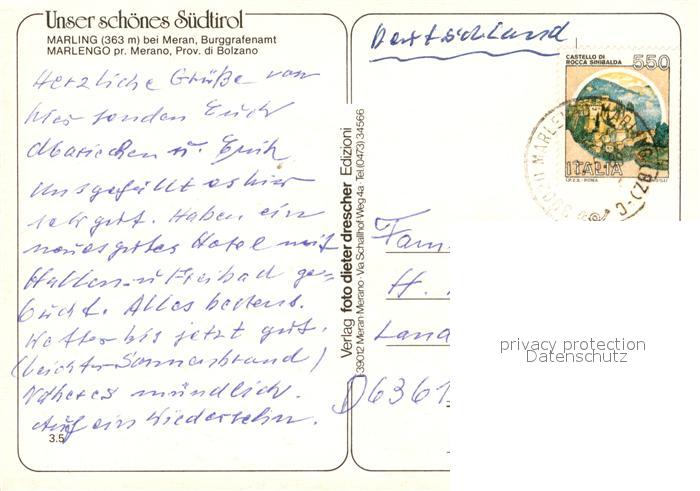 Unser schönes Südtirol
MARLING (363 m) bei Meran, Burggrafenamt
MARLENGO pr. Merano, Prov. di Bolzano
Herzliche Grüße von
hier senden Euch
Mariechen u. Erich
Uns gefällt es hier
sehr gut. Haben ein
neues gutes Hotel mit
Hallen- u Freibad ge-
bucht. Alles bestens.
Wetter bis jetzt gut.
(leichter Sonnenbrand)
Näheres mündlich.
Auf ein Wiedersehn.
3.5
Verlag foto dieter drescher Edizioni
39012 Meran-Merano · Via Schallhof-Weg 4a · Tel. (0473) 34566
Deutschland
CASTELLO DI
ROCCA SINIBALDA
550
ITALIA
I.P.Z.S. - ROMA
(BZ)
Fam.
H.
Land
D6361
privacy protection
Datenschutz